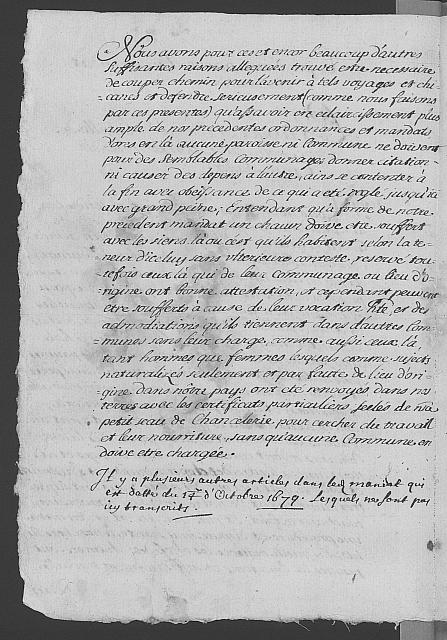 Nous avons pour ces et encor beaucoup d'autres
suffisantes raisons alleguées trouvé estre necessaire
de couper chemin pour l'avenir à tels voyages et chi-
-canes et defendre serieusement (comme nous faisons
par ces presentes) qu'assavoir en éclaircissement plus
ample de nos précédentes ordonnances et mandats
dors en là aucune paroisse ni Commune ne doivent
pour des semblables Communages donner citation
ni causer des depens à l'autre, ains se contenter à
la fin avec obeissance de ce qui a été reglé jusqu'ici
avec grand peine; Entendant qu'à forme de notre
precedent mandat un chacun doive etre souffert
avec les siens là où c'est qu'ils habitent selon la te-
-neur d'iceluy sans ulterieure conteste, reservé tou-
-tefois ceux là qui de leur communage ou lieu d'o-
-rigine ont bonne attestation, et cependant peuvent
etre soufferts à cause de leur vocation et des
admodiations qu'ils tiennent dans d'autres Com-
-munes sans leur charge, comme aussi ceux là
tant hommes que femmes lesquels comme sujets
naturalisés seulement et par faute de lieu d'ori-
-gine dans nôtre pays ont été renvoyés dans nos
terres avec les certificats particuliers seelés de nôtre
petit seau de Chancelerie pour cercher du travail
et leur nourriture, sans qu'aucune Commune en
doive etre chargée.
Il y a plusieurs autres articles dans led mandat qui
est datté du 17e d'Octobre 1679. Lesquels ne sont pas
icy transcrits.